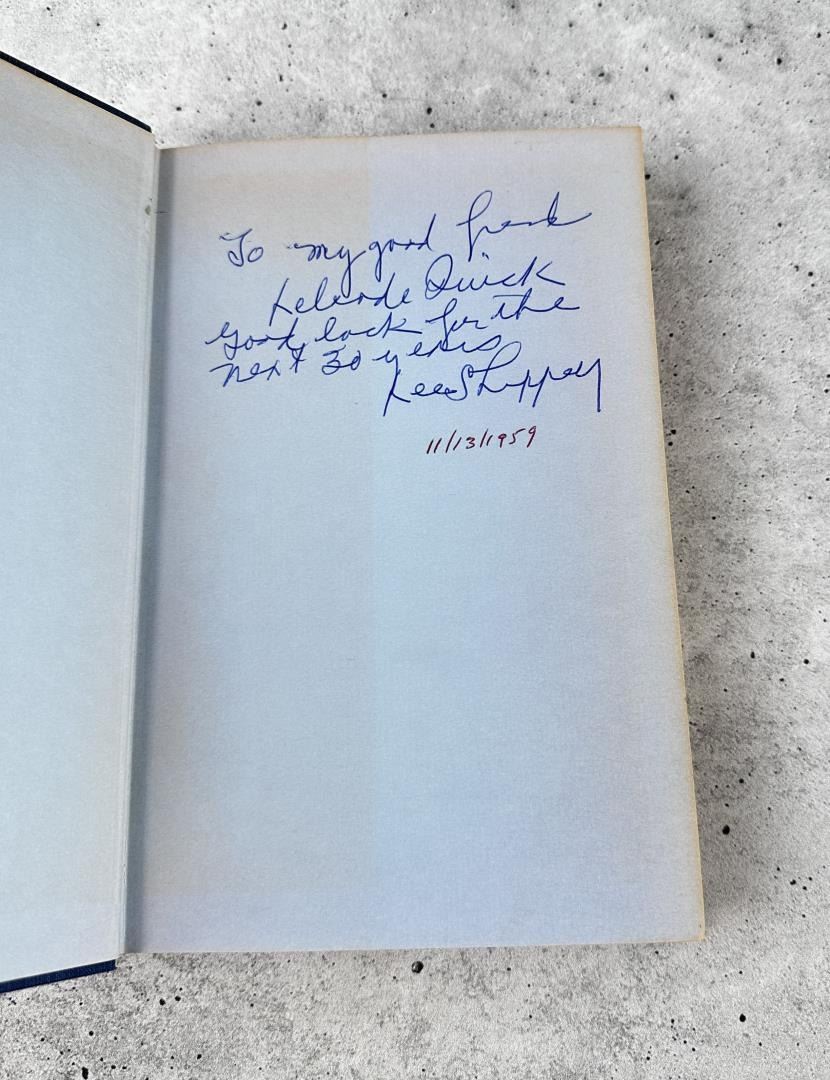 To my good friend
Lelande Quick
Good luck for the
next 30 years
Lee Shippey
11/13/1959